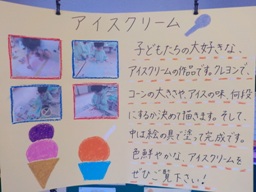 アイスクリーム
子どもたちの大好きな、
アイスクリームの作品です。クレヨンで、
コーンの大きさや、アイスの味、何段
にするか決めて描きます。そして、
中は絵の具で塗って完成です。
色鮮やかな、アイスクリームを
ぜひご覧下さい!